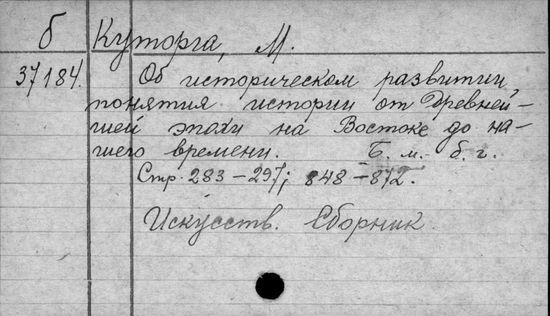 б Куторга, М.
37184. Об историческом развитии
понятия истории от Древней-
шей эпохи на Востоке до на-
шего времени. Б. м. б. г.
Стр. 283-297; 848-872.
Искусств. Сборник